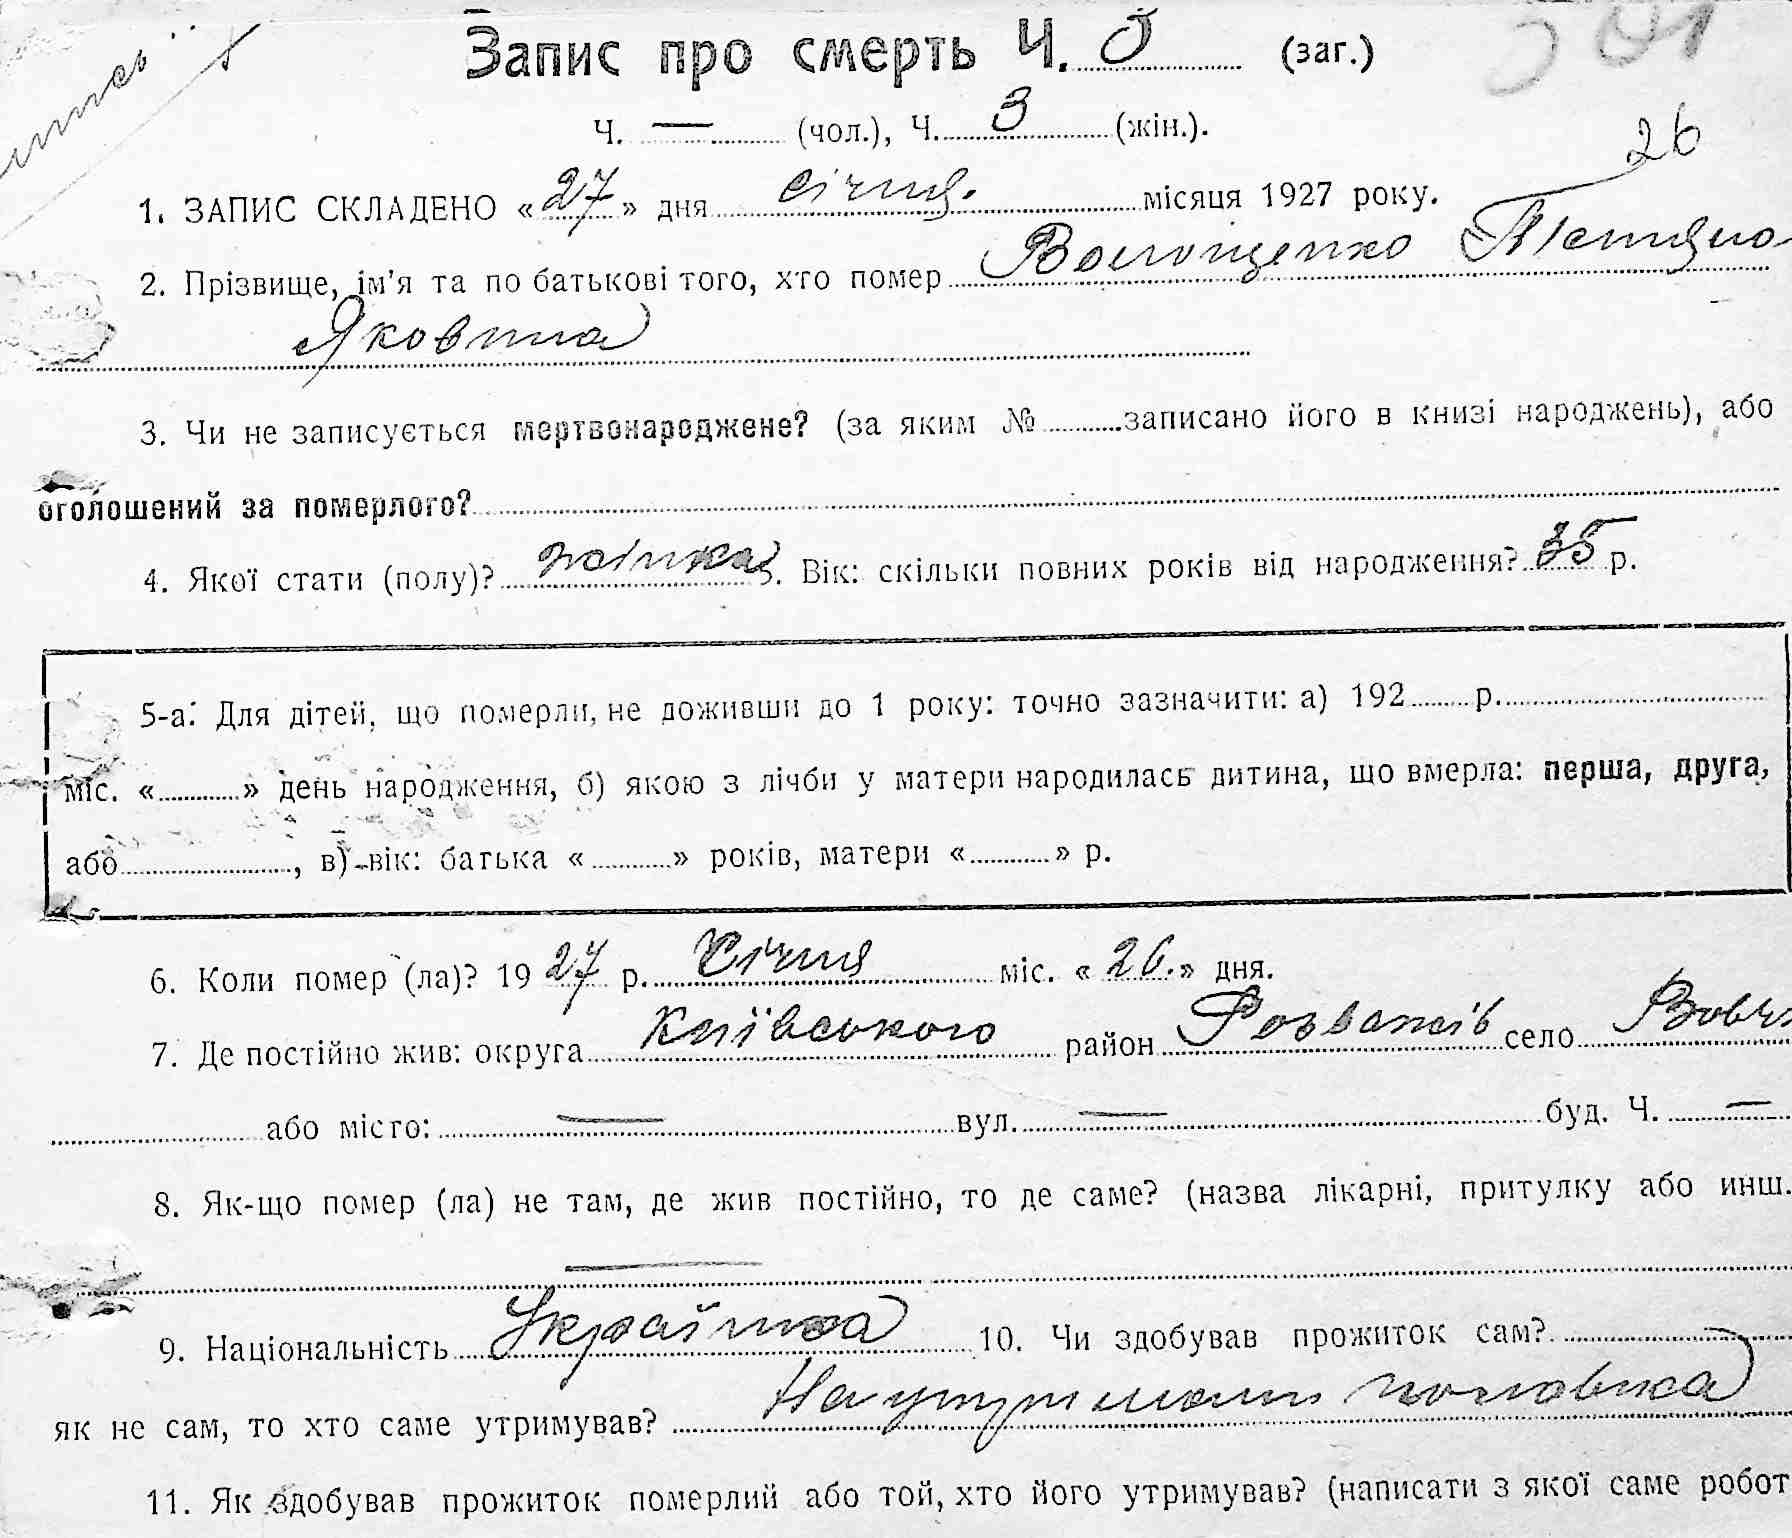 Запис про смерть Ч. 5 (заг.)
Ч. — (чол.), Ч. 3 (жін.).
26
1. ЗАПИС СКЛАДЕНО «27» дня січня місяця 1927 року.
2. Прізвище, ім'я та по батькові того, хто помер Волощенко Тетяна
Яковна
3. Чи не записується мертвонароджене? (за яким № записано його в книзі народжень), або
оголошений за померлого?
4. Якої стати (полу)? жінка. Вік: скільки повних років від народження? 35 р.
5-а. Для дітей, що померли, не доживши до 1 року: точно зазначити: а) 192 р.
міс. « » день народження, б) якою з лічби у матери народилась дитина, що вмерла: перша, друга,
або , в) вік: батька « » років, матери « » р.
6. Коли помер (ла)? 1927 р. Січня міс. «26.» дня.
7. Де постійно жив: округа Київського район Розважів село Вовч
або місто: — вул. — буд. Ч. —
8. Як-що помер (ла) не там, де жив постійно, то де саме? (назва лікарні, притулку або инш.
—
9. Національність Українка 10. Чи здобував прожиток сам?
як не сам, то хто саме утримував? На утриманні чоловіка
11. Як здобував прожиток померлий або той, хто його утримував? (написати з якої саме робот